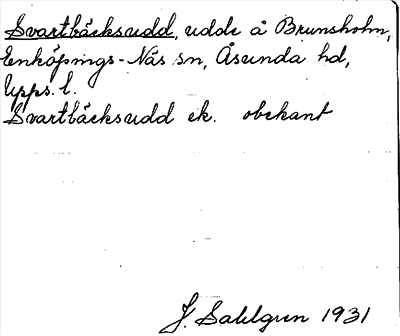 Svartbäcksudd, udde å Brunsholm,
Enköpings-Näs sn, Åsunda hd,
Upps. l.
Svartbäcksudd ek. obekant
J. Sahlgren 1931